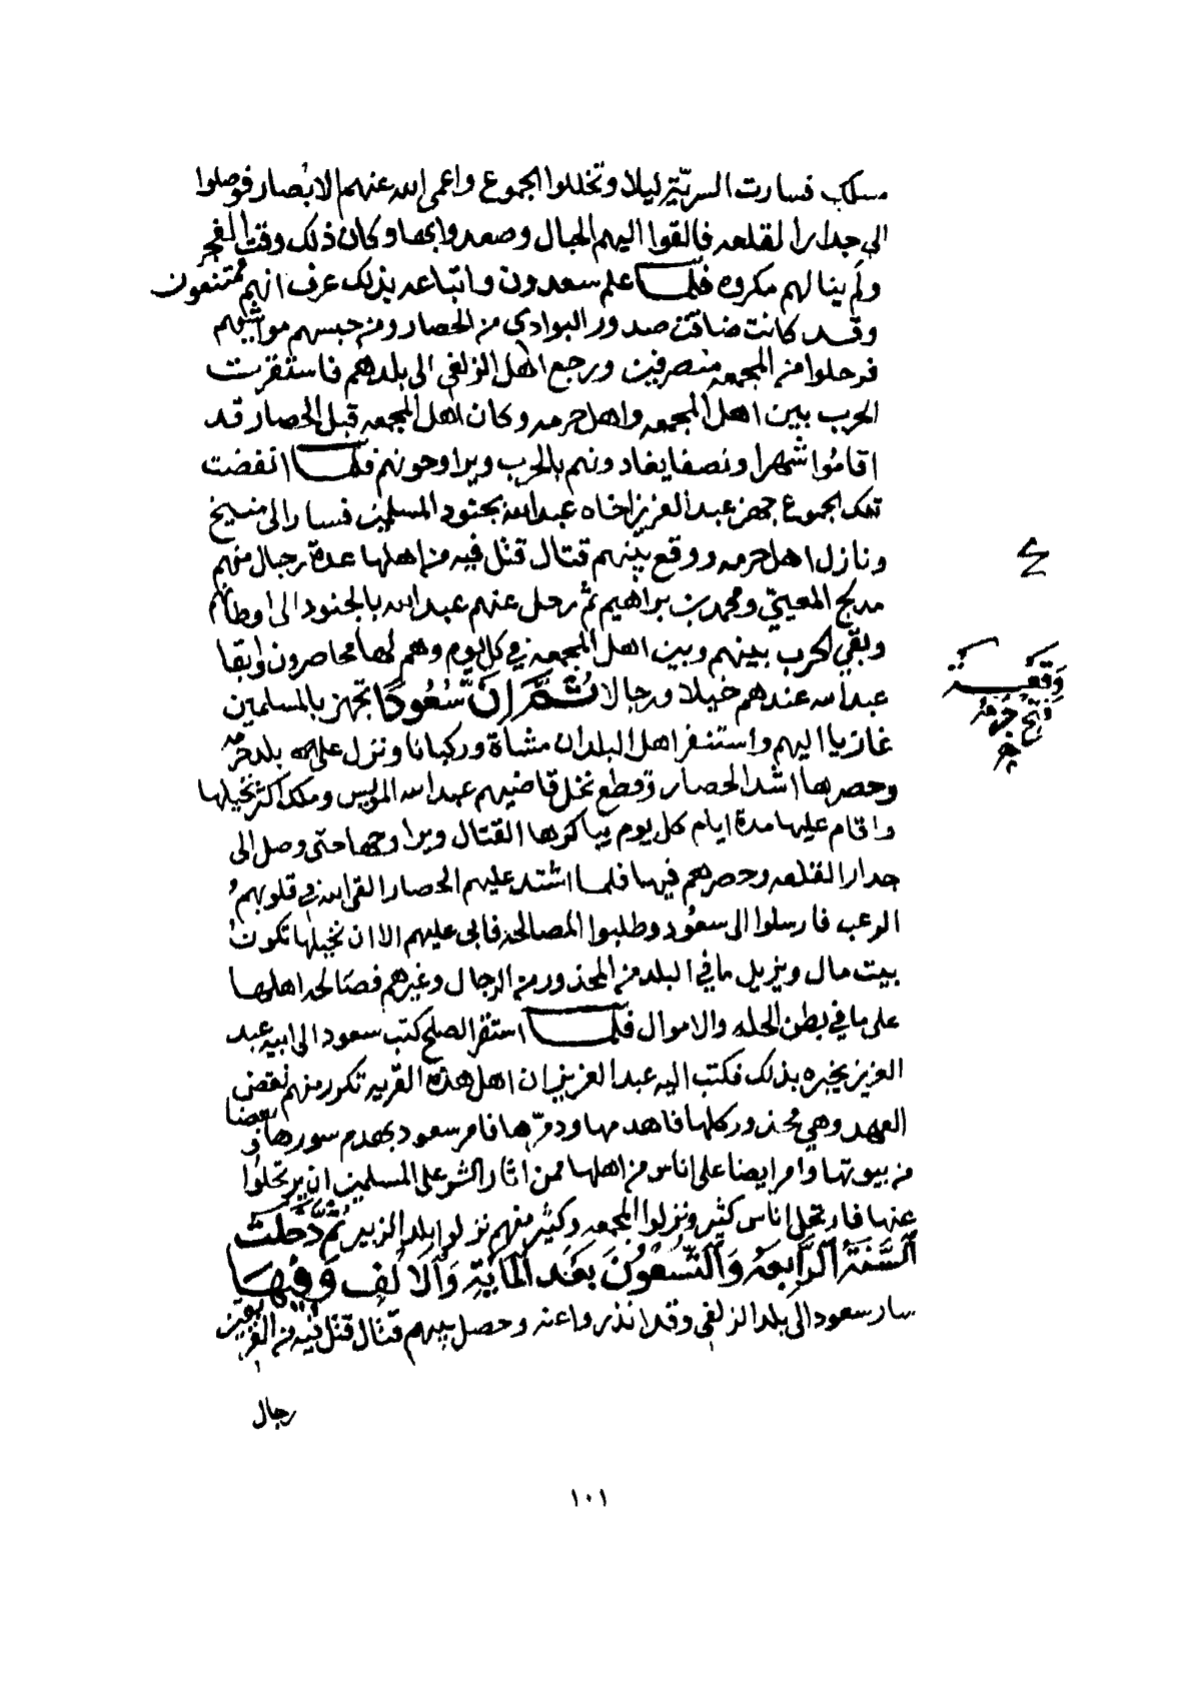 مسلك فسارت السريّة ليلا وتخللوا الجموع واعمى الله عنهم الابصار فوصلوا
الى جدار القلعه فالقوا اليهم الحبال وصعدوا بها وكان ذلك وقت الفجر
ولم ينالهم مكروه فلما علم سعدون واتباعه بذلك عرف انهم ممتنعون
وقد كانت ضاقت صدور البوادي من الحصار ومن حبسهم مواشيهم
فرحلوا من المجمعه منصرفين ورجع اهل الزلفي الى بلدهم فاستقرت
الحرب بين اهل المجمعه واهل حرمه وكان اهل المجمعه قبل الحصار قد
اقاموا شهرا ونصفا يغادونهم بالحرب ويراوحونهم فلما انفضت
تلك الجموع جهز عبد العزيز اخاه عبدالله بجنود المسلمين فسار الى منيخ
ونازل اهل حرمه ووقع بينهم قتال قتل فيه من اهلها عدة رجال منهم
مدلج المعيي ومحمد بن براهيم ثم رحل عنهم عبد الله بالجنود الى اوطانهم
وبقي الحرب بينهم وبين اهل المجمعه في كل يوم وهم لها محاصرون وابقا
عبدالله عندهم خيلا ورجالا ثُمَّ اِنَّ سُعُودًا تجهز بالمسلمين
غازيا اليهم واستنفر اهل البلدان مشاة وركبانا ونزل على بلد حرمه
وحصرها اشد الحصار وقطع نخل قاضيهم عبدالله المويس وملك اكثر نخيلها
واقام عليها مدة ايام كل يوم يباكرها القتال ويراوحها حتى وصل الى
جدار القلعه وحصرهم فيها فلما اشتد عليهم الحصار القى الله في قلوبهم
الرعب فارسلوا الى سعود وطلبوا المصالحه فابى عليهم الا ان نخيلها تكون
بيت مال ويزيل ما في البلد من المحذور من الرجال وغيرهم فصالحه اهلها
على ما في بطن الحله والاموال فلما استقر الصلح كتب سعود الى ابيه عبد
العزيز يخبره بذلك فكتب اليه عبد العزيز ان اهل هذه القريه تكرر منهم نقض
العهد وهي محذور كلها فاهدمها ودمّرها فامر سعود بهدم سورها وبعضا
من بيوتها وامر ايضا على اناس من اهلها ممن اثار الشر على المسلمين ان يرتحلوا
عنها فارتحل اناس كثير ونزلوا المجمعه وكثير منهم نزلوا بلد الزبير ثُمَّ دَخَلَتْ
اَلسَّنَةُ الرَّابِعَهُ وَالتِّسْعُونَ بَعْدَ الْمَايَةِ وَالْاَلْفِ وَفِيهَا
سار سعود الى بلد الزلفي وقد انذروا عنه وحصل بينهم قتال قتل فيه من الفريقين
رجال
وقعة
فتح حرمة
١٠١